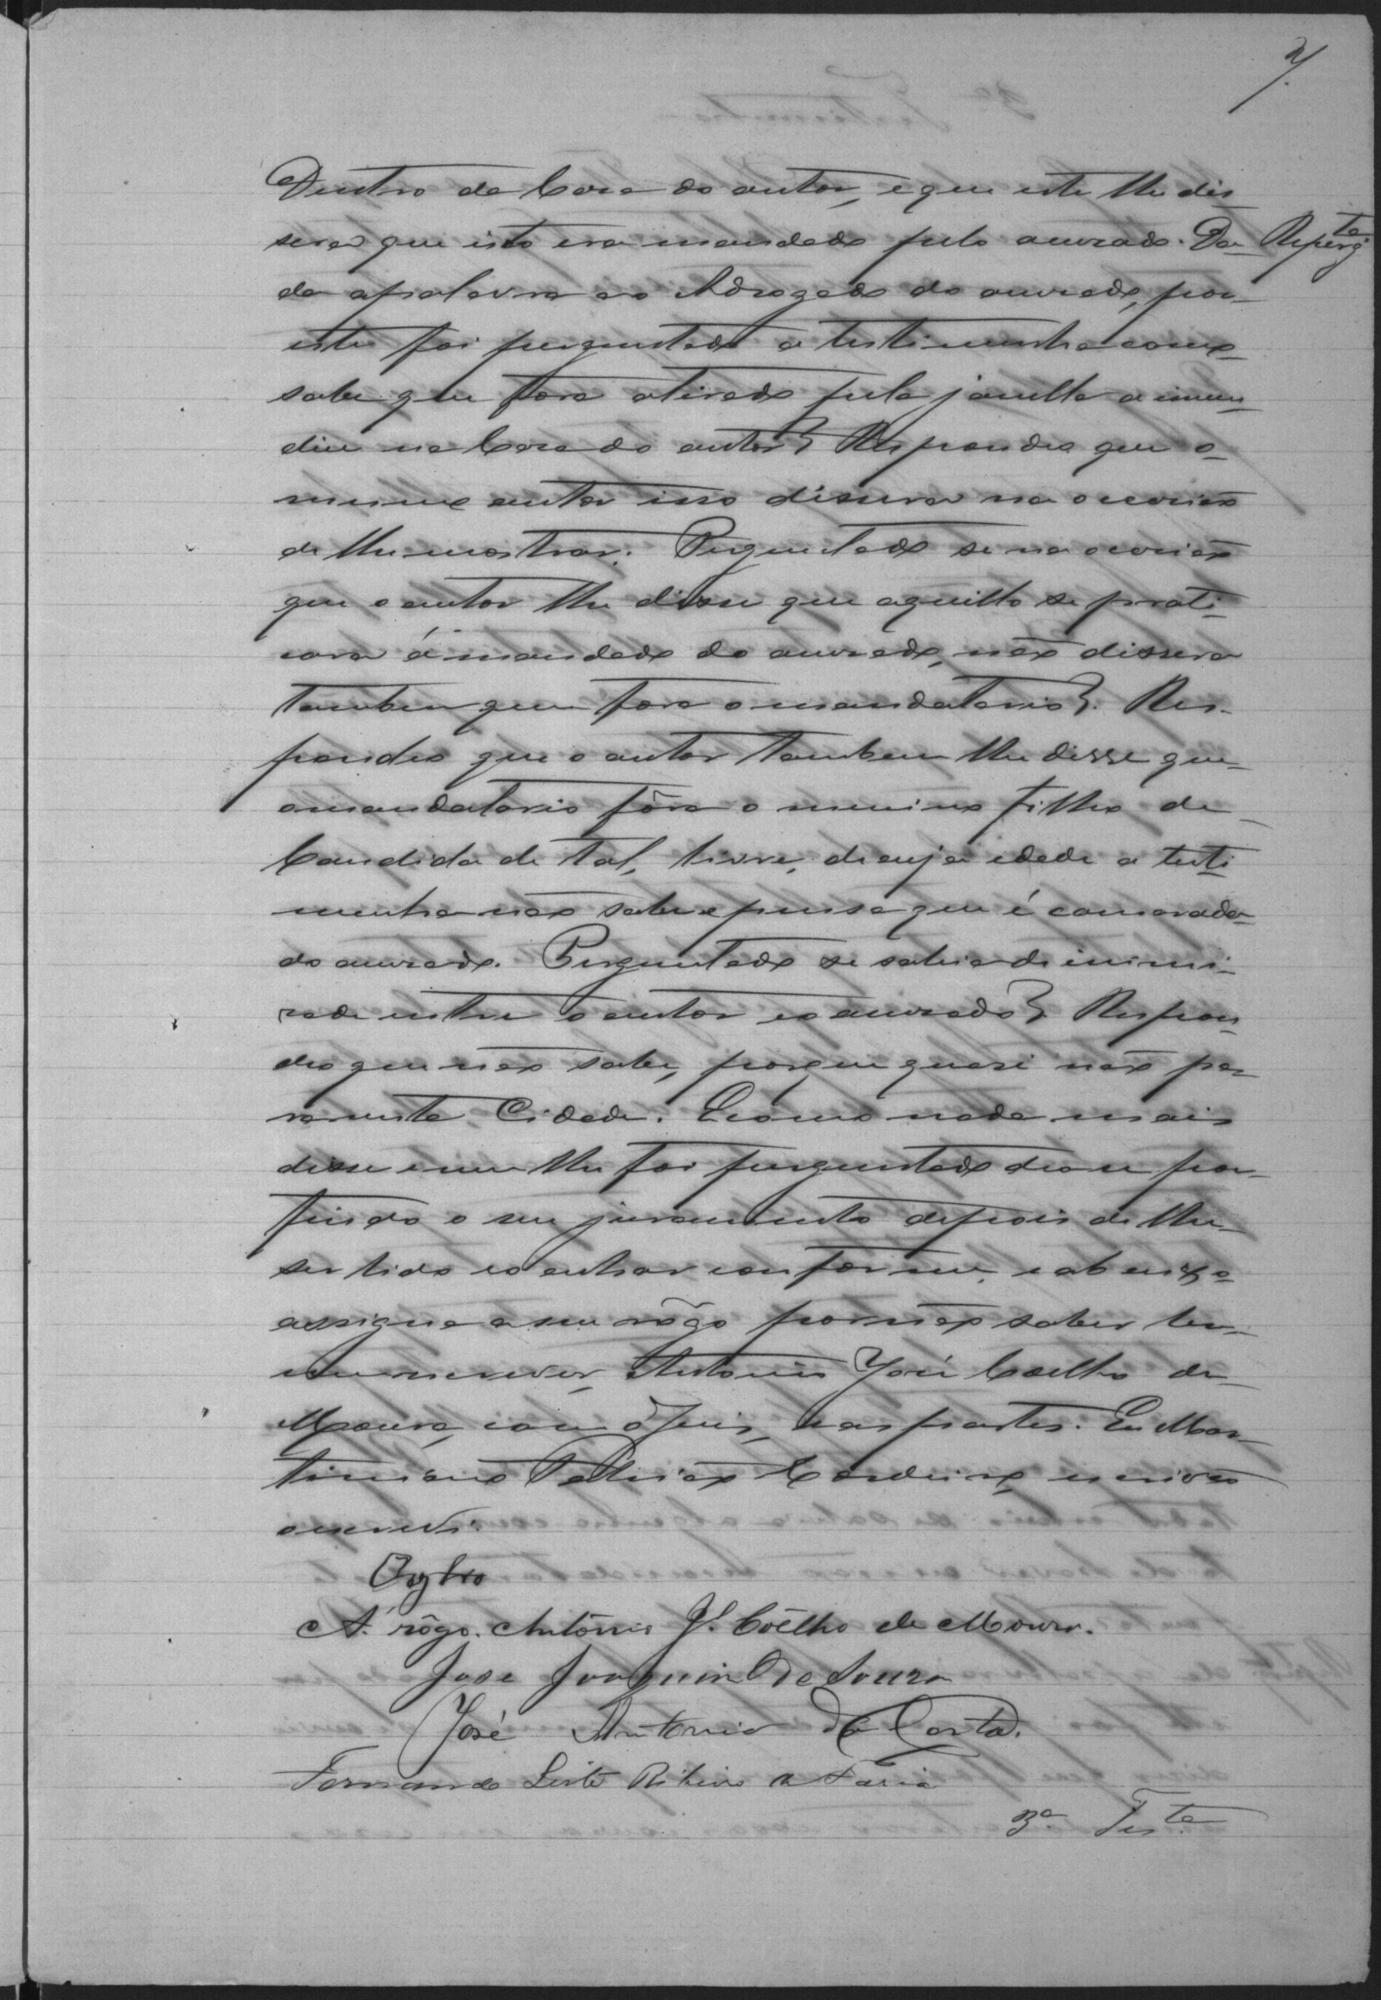 7.
Dentro da Casa do autor, e que este lhe dis-
sera que isto era mandado pelo accusado. Da- Repergta
da apalavra ao Advogado do accusado, por-
este foi perguntado a testimunha como
sabe que fora atirado pela janella a imun-
dice na Casa do autor? Respondeo que o-
mesmo autor isso dissera na occasião
de lhe mostrar. Perguntado se na occasião
que o autor lhe disse que aquillo se prati-
cara á mandado do accusado, não dissera
tambem quem fora o mandatario? Res-
pondeo que o autor tambem lhe disse que-
o mandatario fôra o menino filho de-
Candida de tal, livre, de cuja edade a testi
munha não sabe e pensa que é camarada-
do accusado. Perguntado se sabia de inimi-
zade entre o autor e o accusado? Respon-
deo que não sabe, porque quasi não pa-
ra nesta Cidade. E como nada mais
disse e nem lhe foi perguntado deo se por-
findo o seu juramento depois de lhe-
ser lido e o achar conforme, e abaixo
assigna a seu rôgo por não saber ler-
nem escrever, Antonio José Coelho de-
Moura, com o Juis, e as partes. Eu Mar-
timiano Patricio Cordeiro, escrivão
o escrevi.
A' rôgo. Antônio Jé. Coêlho de Moura.
José Joaquim de Souza
José Antonio da Costa.
Fernando Leite Ribeiro de Faria
3a. Testa.